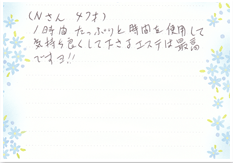 (Nさん 47才)
1時間 たっぷりと時間を使用して
気持ち良くして下さるエステは最高
ですヨ!!